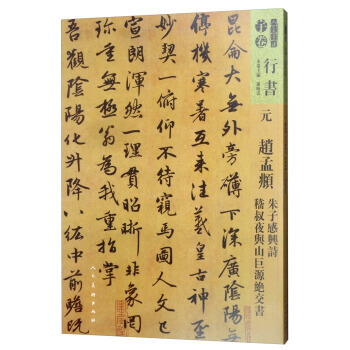 行書
元 趙孟頫
朱子感興詩
嵇叔夜與山巨源絶交書
崑崙大無外旁礴下深廣陰陽無
停機寒暑互来往羲皇古神聖
妙契一俯仰不待窺馬圖人文已
宣朗渾然一理貫昭晰非象罔
珍重無極翁為我重指掌
吾觀陰陽化升降八紘中前瞻既
人民美術出版社